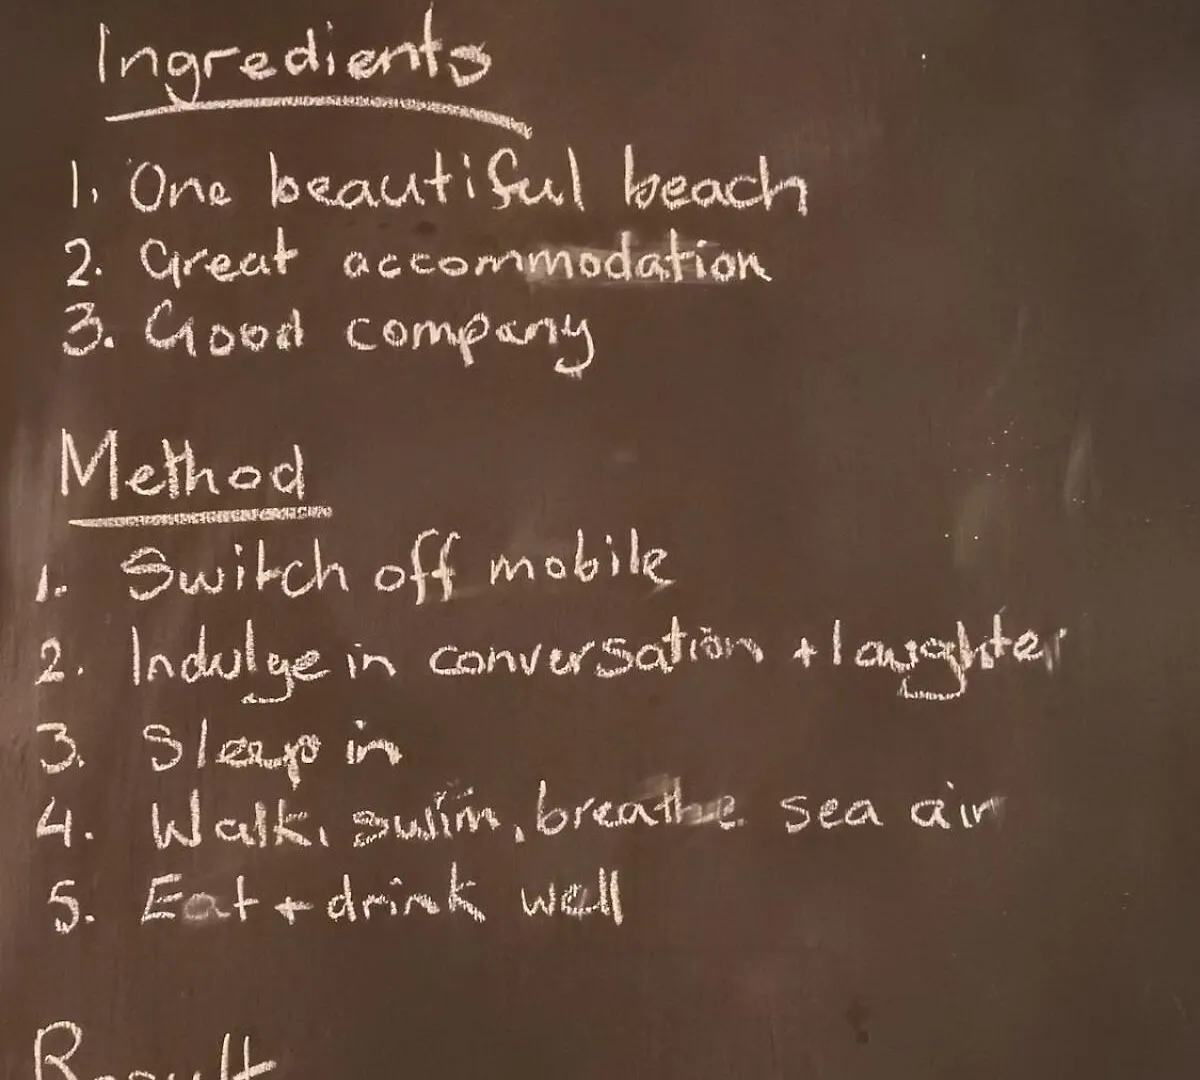 Ingredients
1. One beautiful beach
2. Great accommodation
3. Good company
Method
1. Switch off mobile
2. Indulge in conversation + laughter
3. Sleep in
4. Walk, swim, breathe sea air
5. Eat + drink well
Result